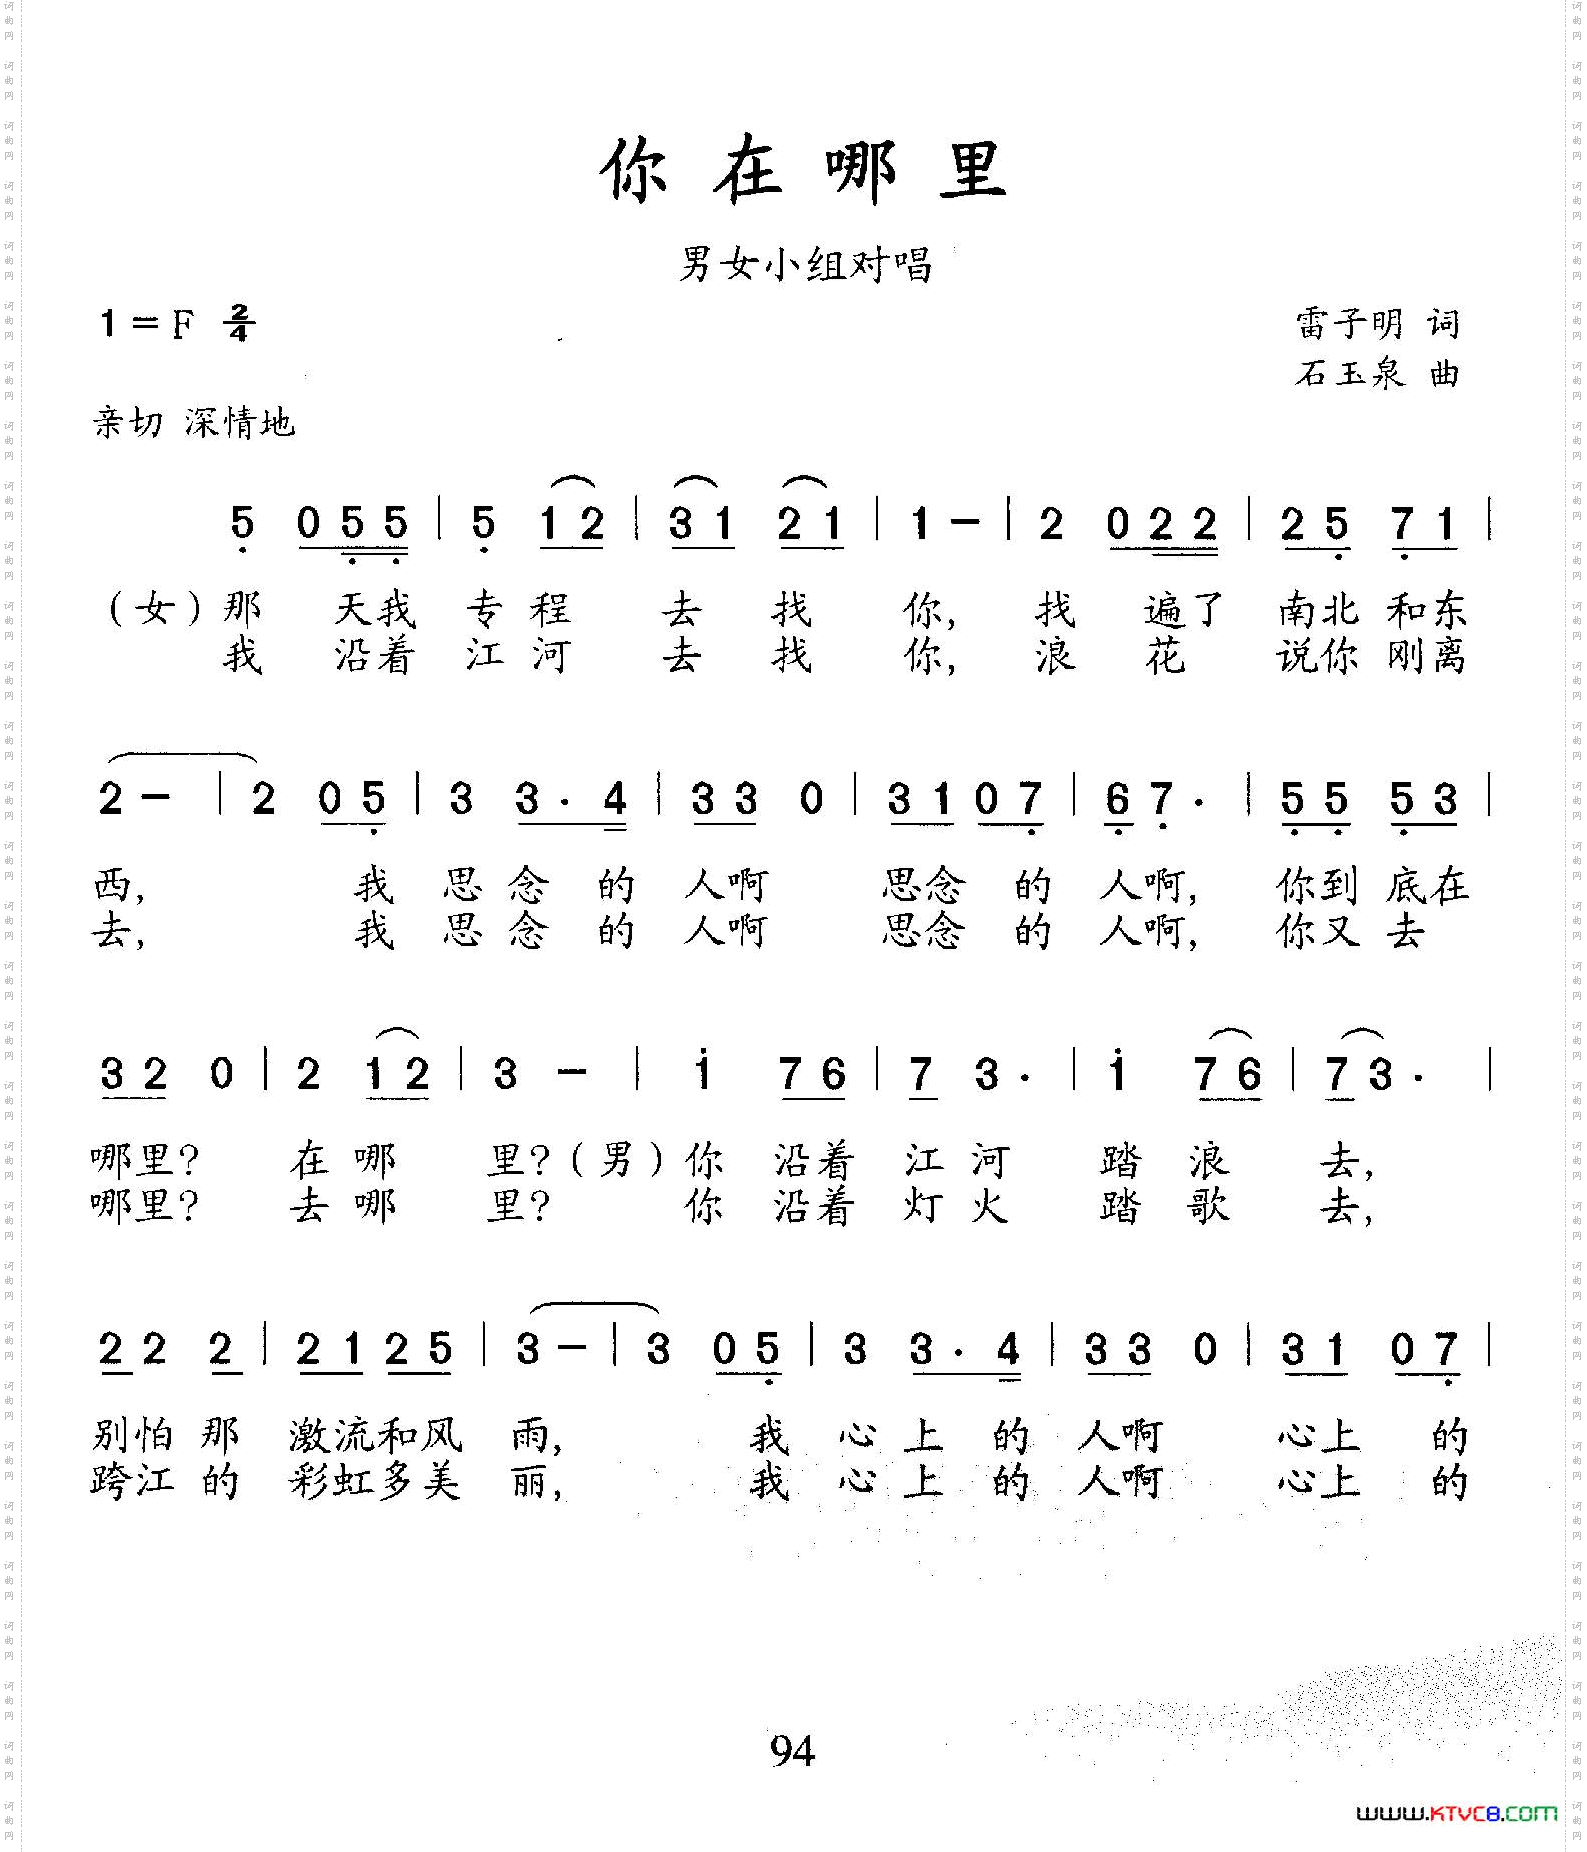 你在哪里
男女小组对唱
1=F 2/4
雷子明 词
石玉泉 曲
亲切 深情地
5 0 5 5 | 5 1 2 | 3 1 2 1 | 1 - | 2 0 2 2 | 2 5 7 1 |
(女)那 天我 专 程 去 找 你, 找 遍了 南北 和东
我 沿着 江 河 去 找 你, 浪 花 说你 刚离
2 - | 2 0 5 | 3 3 · 4 | 3 3 0 | 3 1 0 7 | 6 7 · | 5 5 5 3 |
西, 我 思 念 的 人啊 思念 的 人啊, 你到 底在
去, 我 思 念 的 人啊 思念 的 人啊, 你又 去
3 2 0 | 2 1 2 | 3 - | i 7 6 | 7 3 · | i 7 6 | 7 3 · |
哪里? 在 哪 里?(男)你 沿着 江 河 踏 浪 去,
哪里? 去 哪 里? 你 沿着 灯 火 踏 歌 去,
2 2 2 | 2 1 2 5 | 3 - | 3 0 5 | 3 3 · 4 | 3 3 0 | 3 1 0 7 |
别怕 那 激流和风 雨, 我 心 上 的 人啊 心上 的
跨江 的 彩虹多美 丽, 我 心 上 的 人啊 心上 的
94
www.KTVC8.COM